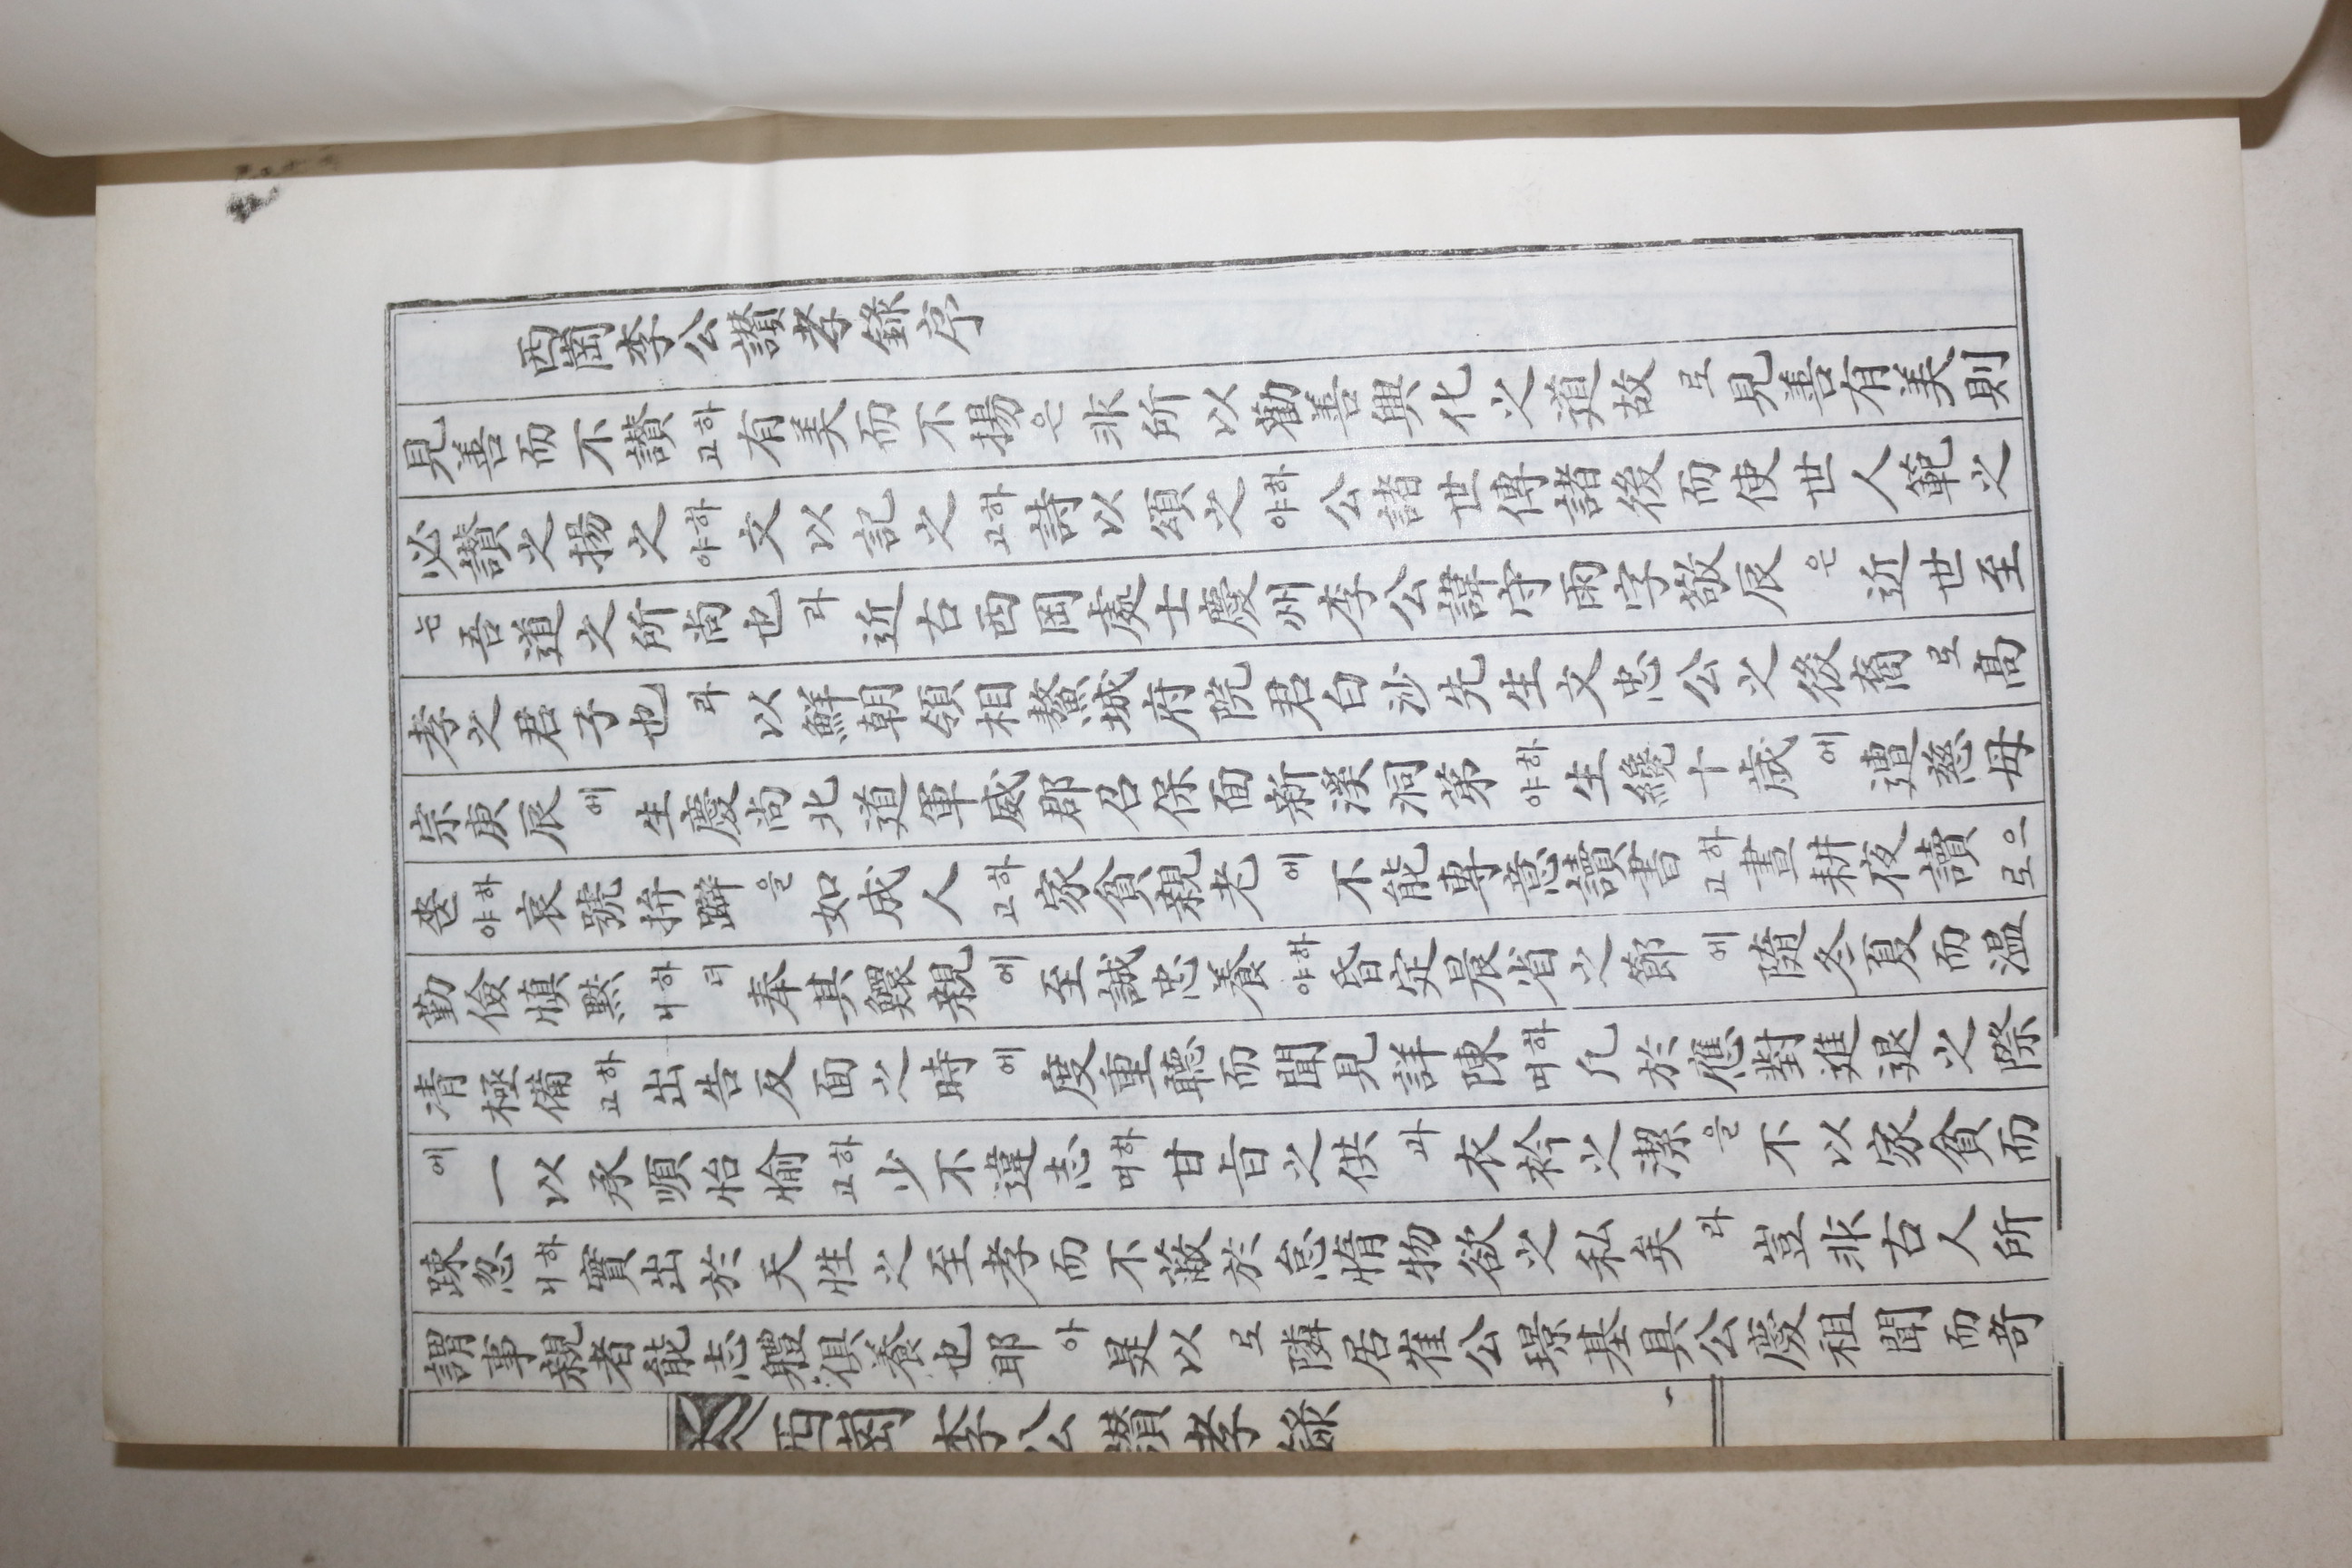 西崗李公讃孝錄序
見善而不讃하고有美而不揚은非所以勸善興化之道故로見善有美則
必讃之揚之하야文以記之하고詩以頌之하야公諸世傳諸後而使世人範之
는吾道之所尚也라近古西岡處士慶州李公諱守雨字敬辰은近世至
孝之君子也라以鮮朝領相鰲城府院君白沙先生文忠公之後裔로高
宗庚辰에生慶尚北道軍威郡召保面新溪洞第하야生纔十歲에遭慈母
喪하야哀號擗踊을如成人하고家貧親老에不能專意讀書하고晝耕夜讀으로
勤儉愼黙하니 奉其鰥親에至誠忠養하야昏定晨省之節에隨冬夏而温
凊極備하고出告反面之時에度重聽而聞見詳陳하며凡於應對進退之際
에一以承順怡愉하고少不違志하며甘旨之供과衣衿之潔을不以家貧而
踈忽하니實出於天性之至孝而不蔽於怠惰物欲之私矣라豈非古人所
謂事親者能志體俱養也耶아是以로隣居崔公璟基具公慶祖聞而奇
西崗李公讃孝錄